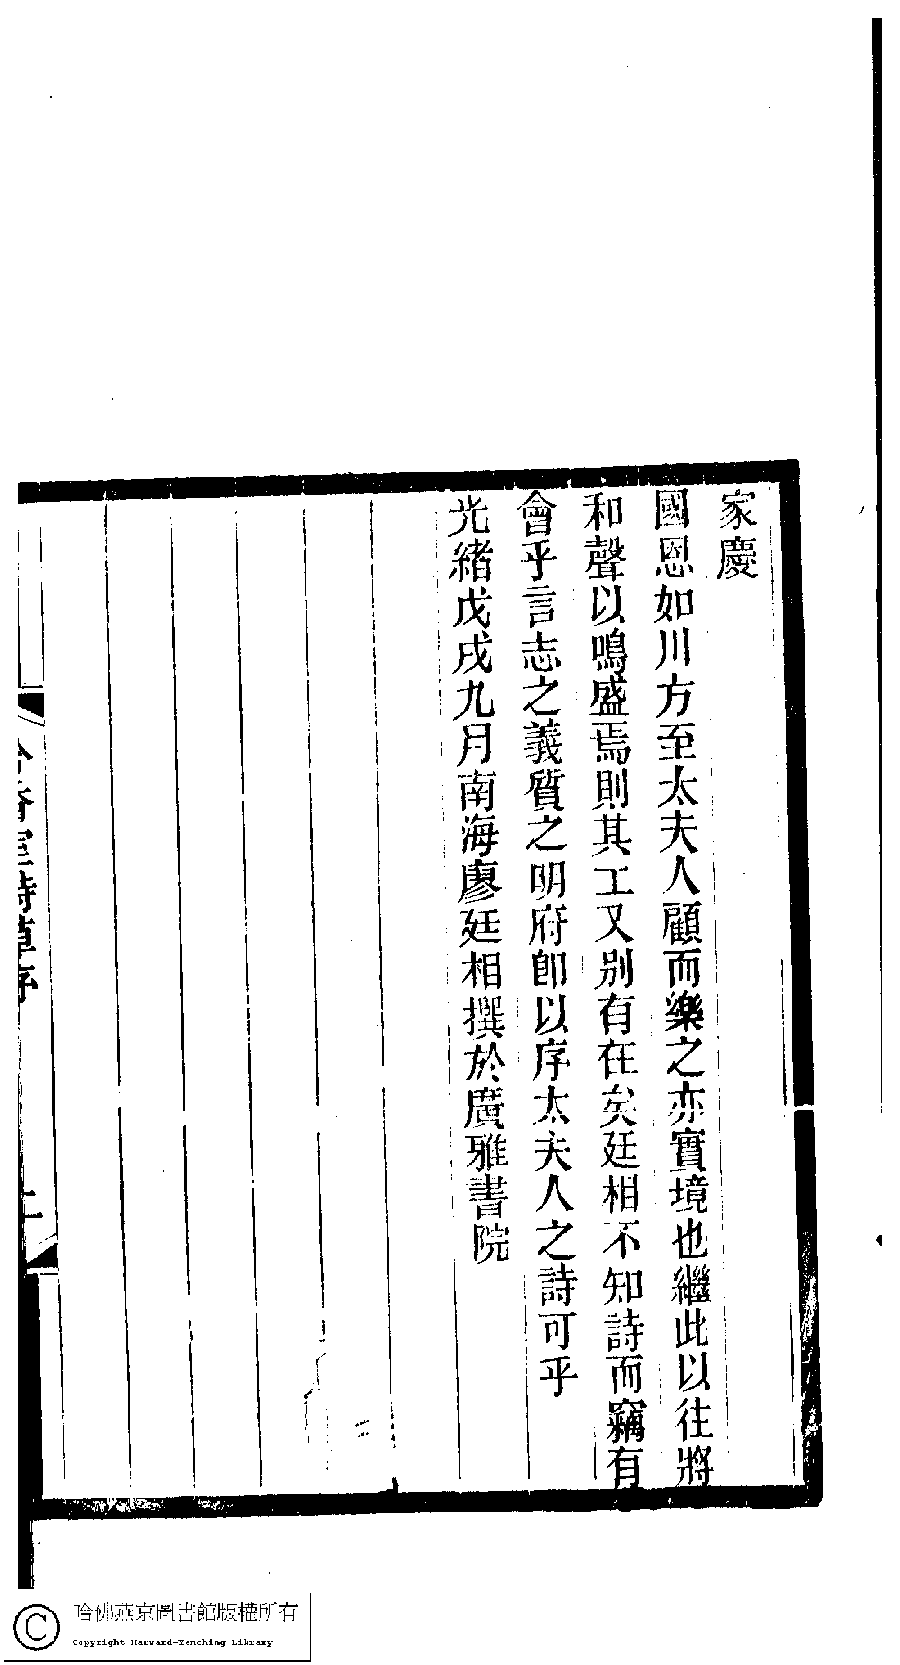 家慶
國恩如川方至太夫人顧而樂之亦實境也繼此以往將
和聲以鳴盛焉則其工又别有在矣廷相不知詩而竊有
會乎言志之義質之明府卽以序太夫人之詩可乎
光緒戊戌九月南海廖廷相撰於廣雅書院
香室詩草序
哈佛燕京圖書館版權所有
Copyright Harvard-Yenching Library